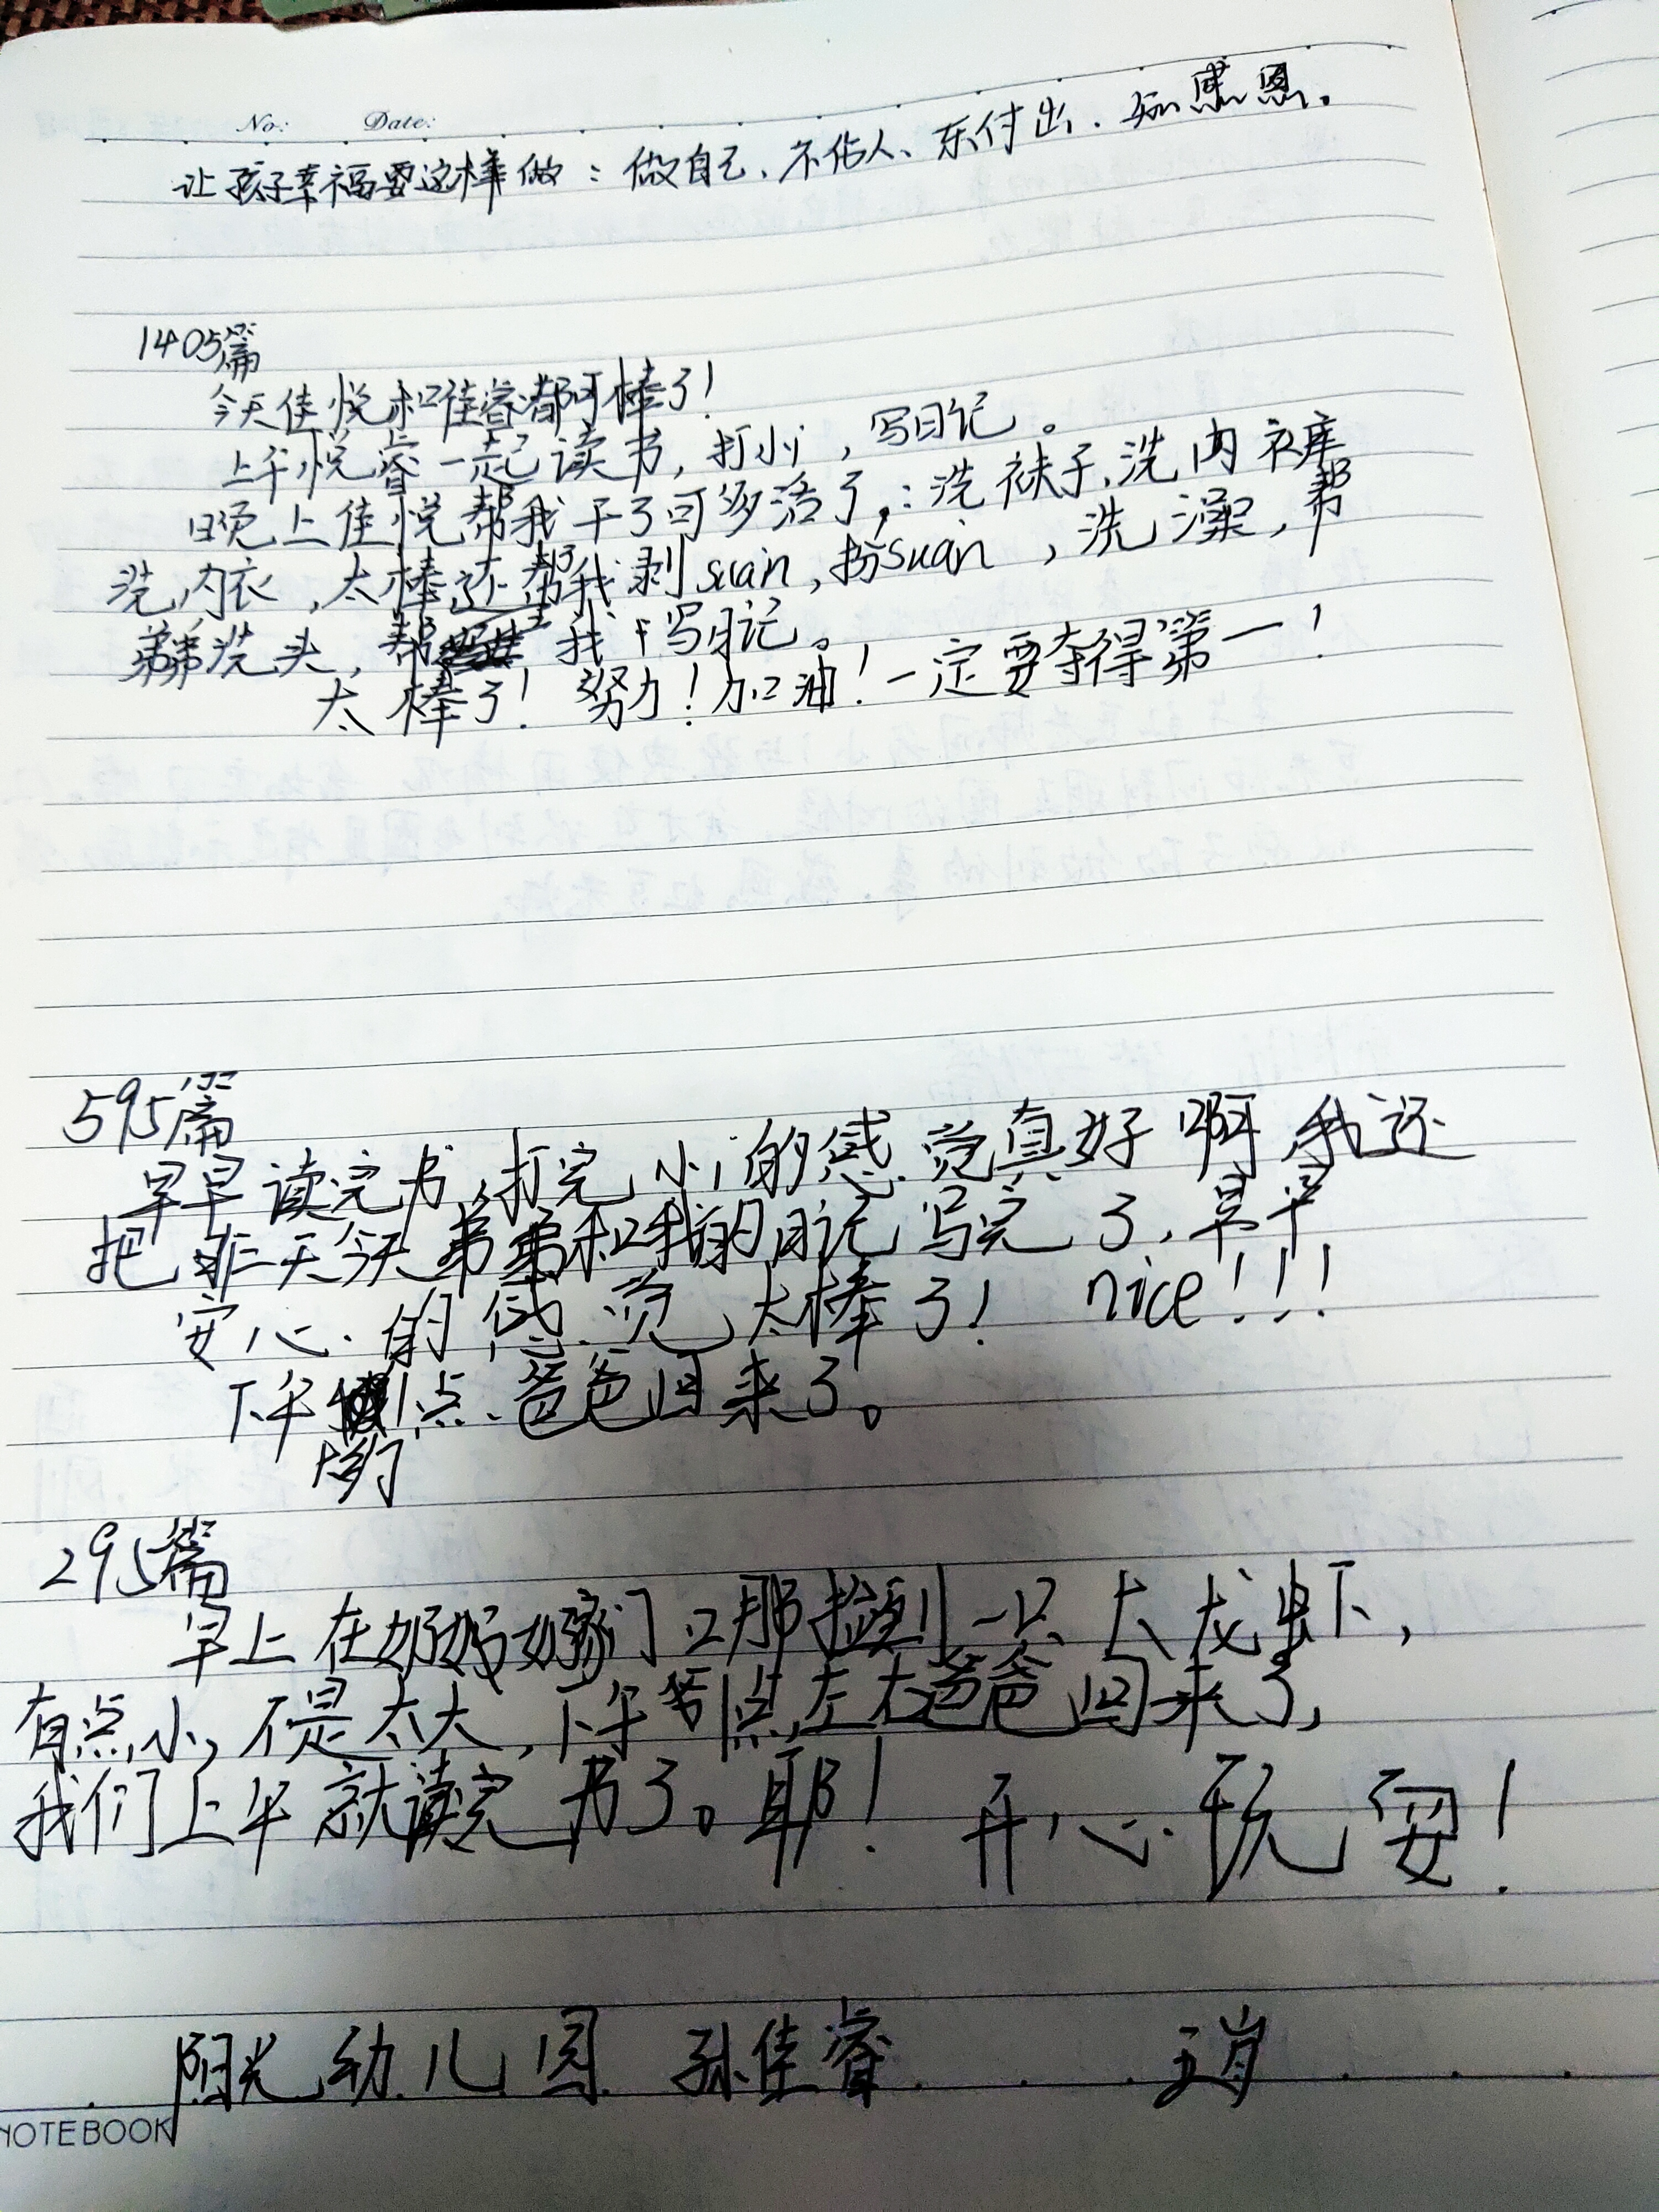 No: Date:
让孩子幸福要这样做：做自己、不佔人、乐付出、知感恩。
1405篇
今天佳悦和佳睿都可棒了！
上午悦睿一起读书，打小，写日记。
晚上佳悦帮我干了可多活了，：洗袜子、洗内衣库
洗内衣，太棒还帮我剥suàn，扮suàn，洗澡，帮
弟弟洗头，帮我写日记。
太棒了！努力！加油！一定要夺得第一！
595篇
早早读完书，打完小的感觉真好啊我还
把昨天今天弟弟和我的日记写完了，早早
安心的感觉太棒了！ nice！！！
下午1点爸爸回来了。
295篇
早上在奶奶嫁门口那捡到一只大龙虾，
有点小，不是太大，下午1点左右爸爸回来了，
我们上午就读完书了。耶！开心玩耍！
阳光幼儿园 孙佳睿 五岁
NOTEBOOK